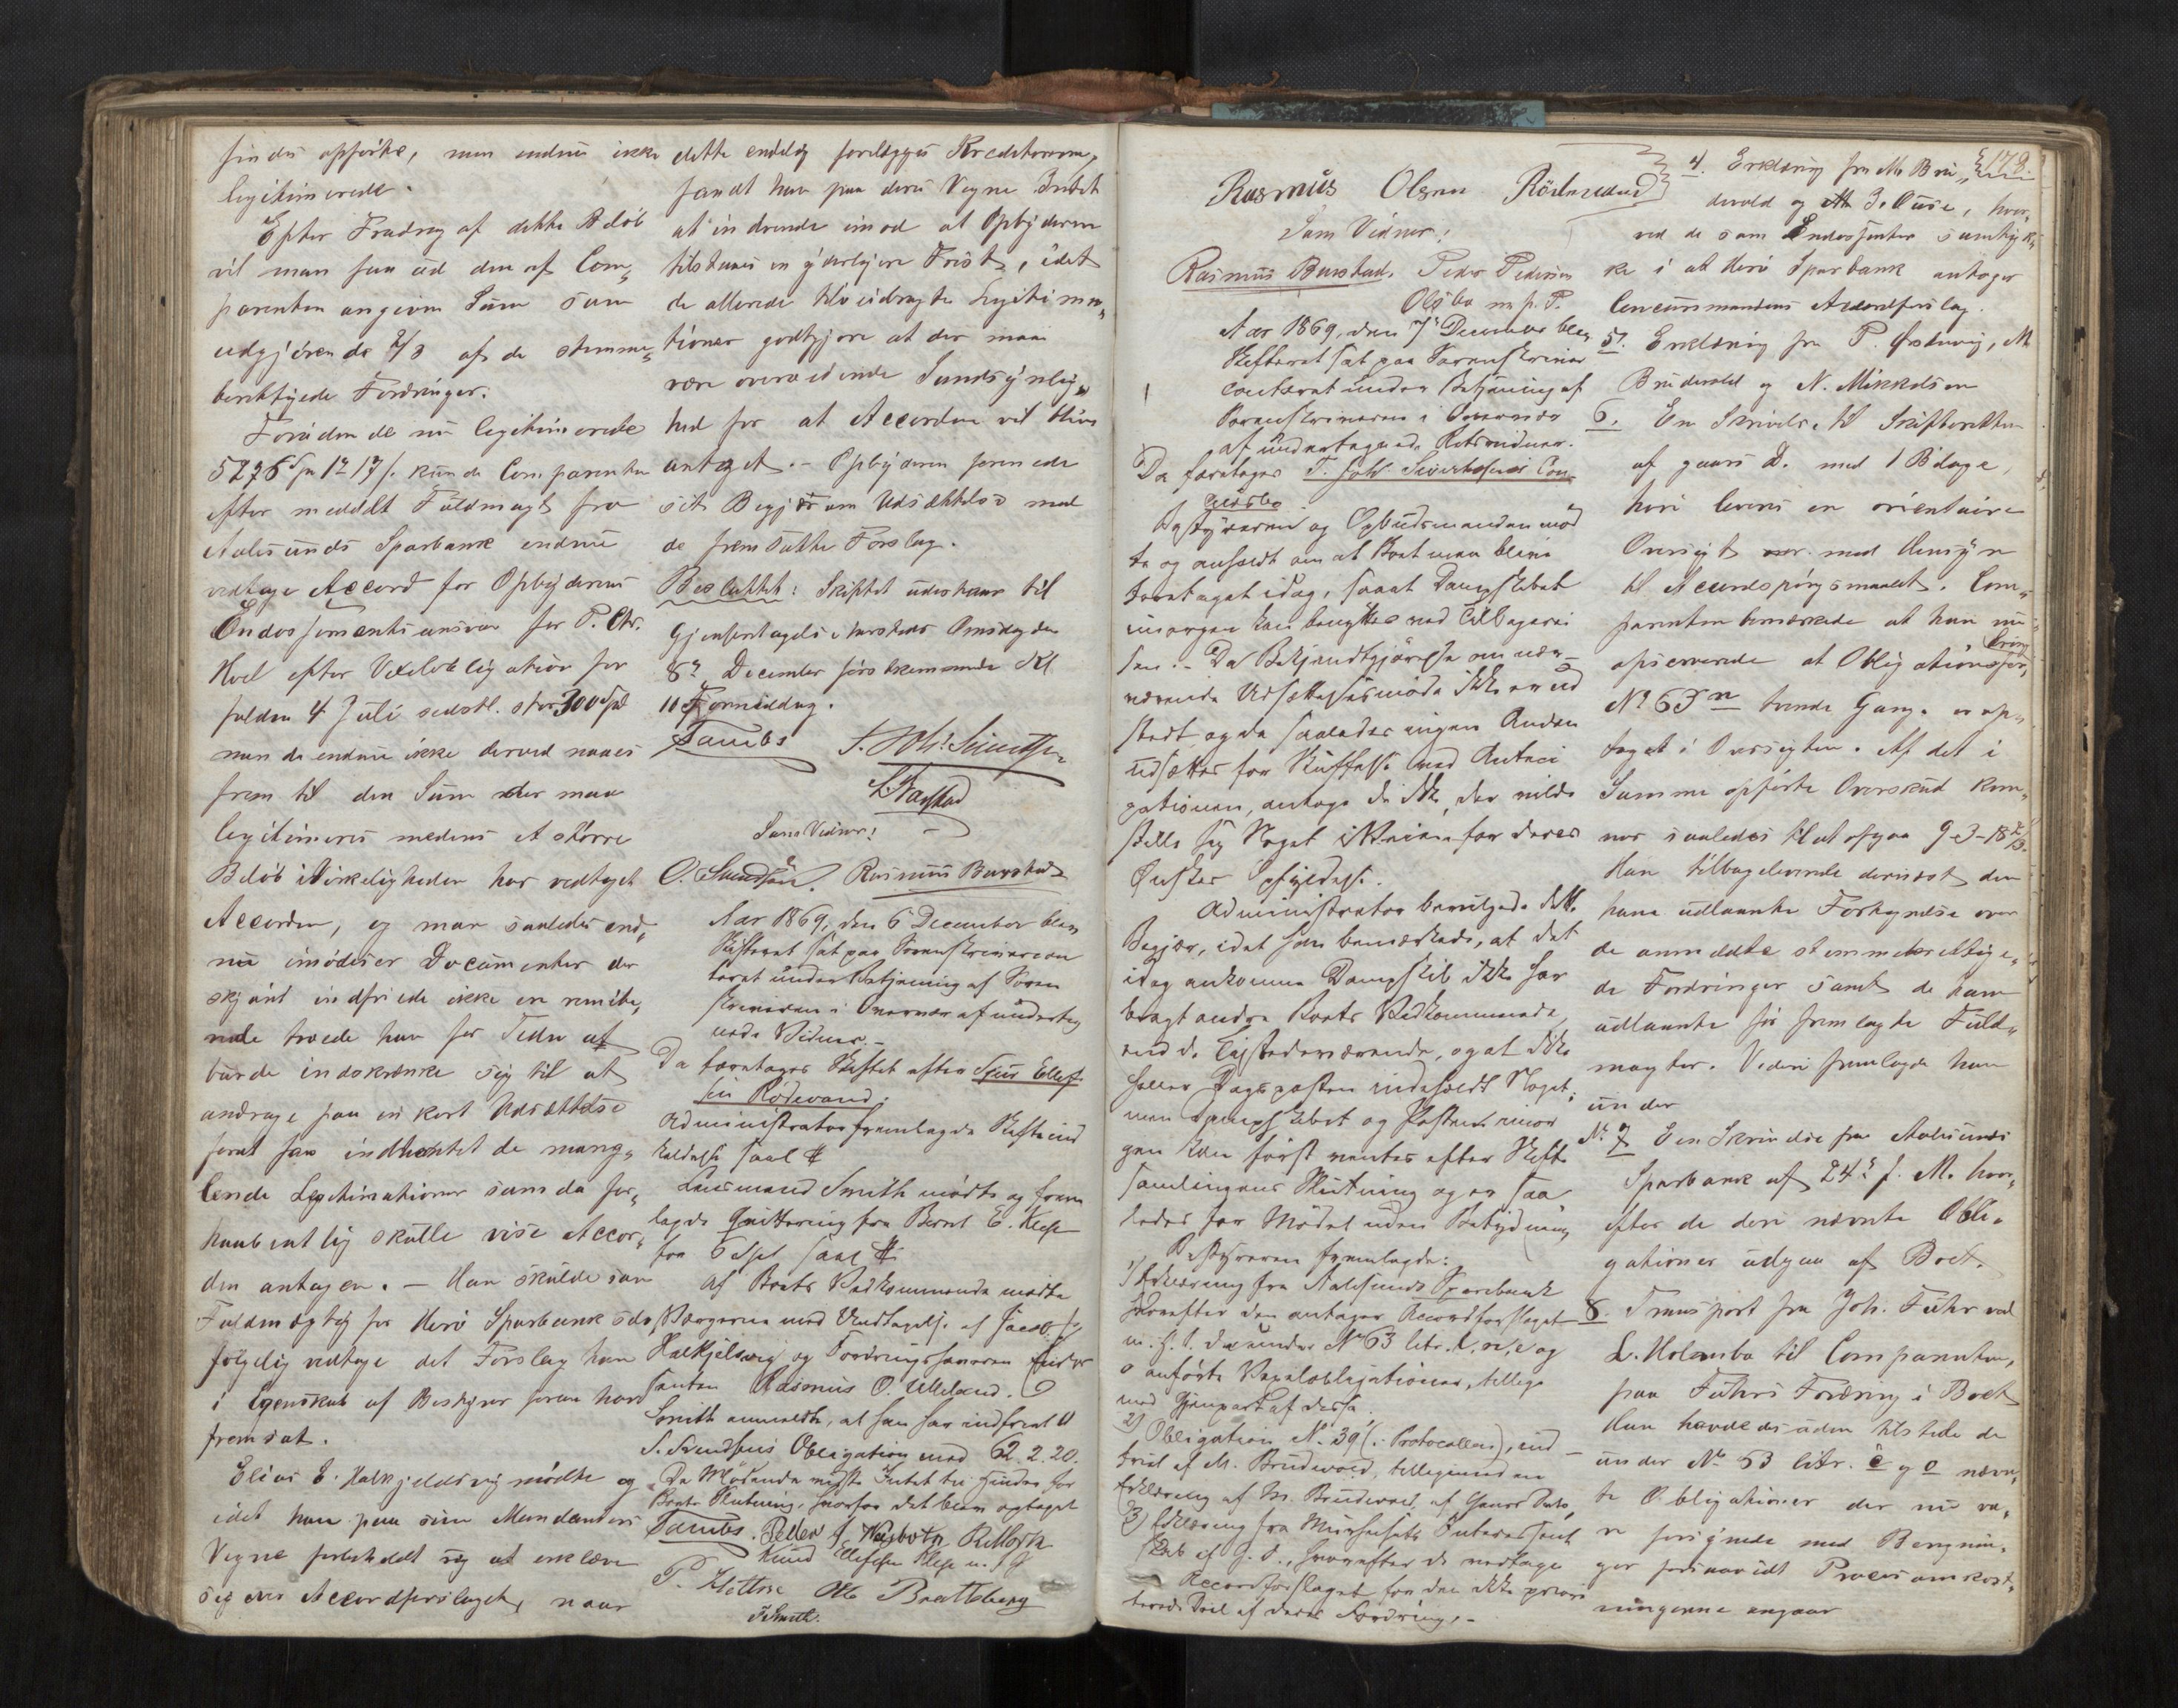 findes opførte, men endnu ikke
legitimerede.
Efter Fradrag af dette Beløb
vil man faa ud den af Com„
parenten angivne Sum som
udgjørende 2/3 af de stemme„
berettigede Fordringer.
Foruden de nu legitimerede
5276 Spd 1 17 s. kunde Comparenten
efter meddelt Fuldmagt fra
Aalesunds Sparbank endnu
vedtage Accord for Opbyderens
Endossementsansvar for P. Chr.
Hvel efter Vexelobligation for
falden 4 Juli sidstl. stor 300 Spd
men da endnu ikke derved naaes
frem til den Sum der maa
legitimeres medens et større
Beløb i Virkeligheden har vedtaget
Accorden, og man saaledes end„
nu imødeser Documenter der
skjønt indfriede ikke ere remitte„
rede troede han for Tiden at
burde indskrænke sig til at
andrage paa en kort Udsættelse
forat faa indhentet de mang„
lende Legitimationer som da for„
haabentlig skulle vise Accor„
den antagen. — Han skulde som
Fuldmægtig for Herø Sparbank selv
følgelig vedtage det Forslag han
i Egenskab af Bestyrer foran har
fremsat.
Elias E. Halkjeldsvig mødte og
idet han paa sine Mandanters
Vegne forbeholdt sig at erklære
sig over Accordforslaget, naar
dette endelig forelægges Kreditorerne,
fandt han paa deres Vegne Intet
at indvende imod at Opbyderen
tilstaaes en yderligere Frist, idet
de allerede tilveiebragte Legitima„
tioner godtgjøre at der maa
være overveiende Sandsynlig„
hed for at Accorden vil blive
antaget. — Opbyderen forenede
sit Begjær om Udsættelse med
de fremsatte Forslag.
Besluttet: Skiftet udestaar til
Gjenforetagelse hersteds Onsdag den
8de December førstkommende Kl.
10 Formiddag.
Tambs S. Joh. Sivertsen
Som Vidner:
O. Svendsen. Rasmus Barstad
Aar 1869, den 6 December blev
Skifteret sat paa Sorenskrivercon
toret under Betjening af Soren
skriveren i Overvær af underteg
nede Vidner. —
Da foretoges Skiftet efter Sjur Ellef
sen Rødevand.
Administrator fremlagde Skifteind
kaldelse saal #
Lensmand Smith mødte og frem
lagde Qvittering fra Bernt E. Kleppe
for 6 Spd saal #
Af Boets Vedkommende mødte
Værgerne med Undtagelse af Jacob
Halkjelsvig og Fordringshaveren
Rasmus O. Ulleland.
Smith anmeldte, at han har indfriet
S. Svendsens Obligation med 62. 2. 20.
De Mødende vidste Intet til Hinder for
Boets Slutning, hvorfor det blev optaget
Tambs. Peder J. Nærbøtn
Knud Ellefsen Kleppe m. f. P.
P. Klettve Ole Bratteberg
Smith.
Rasmus Olsen Rödesund
Som Vidner:
Rasmus Barstad. Peder Pedersen
Olsbø m. p. P.
Aar 1869, den 7de December blev
Skifteret sat paa Sorenskriver
contoret under Betjening af
Sorenskriveren i Overvær
af undertegnede Retsvidner.
Da foretoges S. Joh. Sivertsens Con„
cursbo
Bestyreren og Opbudsmanden mød
te og anholdt om at Boet maa blive
foretaget idag, saaat Dampskibet
imorgen kan benyttes ved Tilbagerei
sen. — Da Bekjendtgjørelse om nær„
værende Udsættelsesmøde ikke er ud
stedt og da saaledes ingen Anden
udsættes for Skuffelse ved Antici
pationen, antoge de ikke, der vilde
stille sig Noget i Veien for deres
Ønskes Opfyldelse.
Administrator bevilgede dette
Begjær, idet han bemærkede, at det
idag ankomne Dampskib ikke har
bragt andre Boets Vedkommende,
end de Tilstedeværende, og at ikke
heller Dagsposten indeholdt Noget;
men Dampskibet og Posten imor
gen kan først ventes efter Skifte
samlingens Slutning og er saa
ledes for Mødet uden Betydning
Bestyreren fremlagde:
1) Erklæring fra Aalesunds Sparebank
hvorefter den antager Accordforslaget
m. H. t. de under No 63 litr. l, n, e og
o anførte Vexelobligationer, tillige
med Gjenpart af disse.
2) Obligation N. 39 (i Protocollen), ind
friet af M. Brudevold, tilligemed en
Erklæring af M. Brudevold, af Gaars Dato,
3) Erklæring fra Mœrhusets Interessent
skab af G. D., hvorefter de vedtage
Accordforslaget for den ikke priori
terede Deel af deres Fordring. —
178.
4. Erklæring fra M. Bru„
devold og 3. Ouse, hvor„
ved de som Endossenter samtyk„
ke i at Herø Sparbank antager
Concursmandens Accordforslag.
5. Erklæring fra P. Ørstenvig, M
Brudevold og N. Mikkelsen
6. En Skrivelse til Skifteretten
af gaars D. med 1 Bilage,
hvori leveres en orienterende
Oversigt med Hensyn
til Accordspørgsmaalet. Com„
parenten bemærkede at han nu
observerede at Obligationsfordring
No 63 n tvende Gange er op„
taget i Oversigten. Af det i
Summa opførte Overskud kom„
mer saaledes til at afgaa 9-3-18 2/3.
Han tilbageleverede dernæst den
ham udlaante Fortegnelse over
de anmeldte stemmeberettige„
de Fordringer samt de ham
udlaante før fremlagte Fuld„
magter. Videre fremlagde han
under
No 7 Een Skrivelse fra Aalesunds
Sparbank af 24de f. M. hvor„
efter de deri nævnte Obli„
gationer udgaa af Boet.
8. Transport fra Joh. Führ ved
L. Holambo til Comparenten,
paa Führs Fordring i Boet
Han havde desuden tilstede de
under No 63 litr. e og o nævn„
te Obligationer der nu va„
re forsynede med Beregnin„
ger forsaavidt Procesomkost„
ningerne angaar